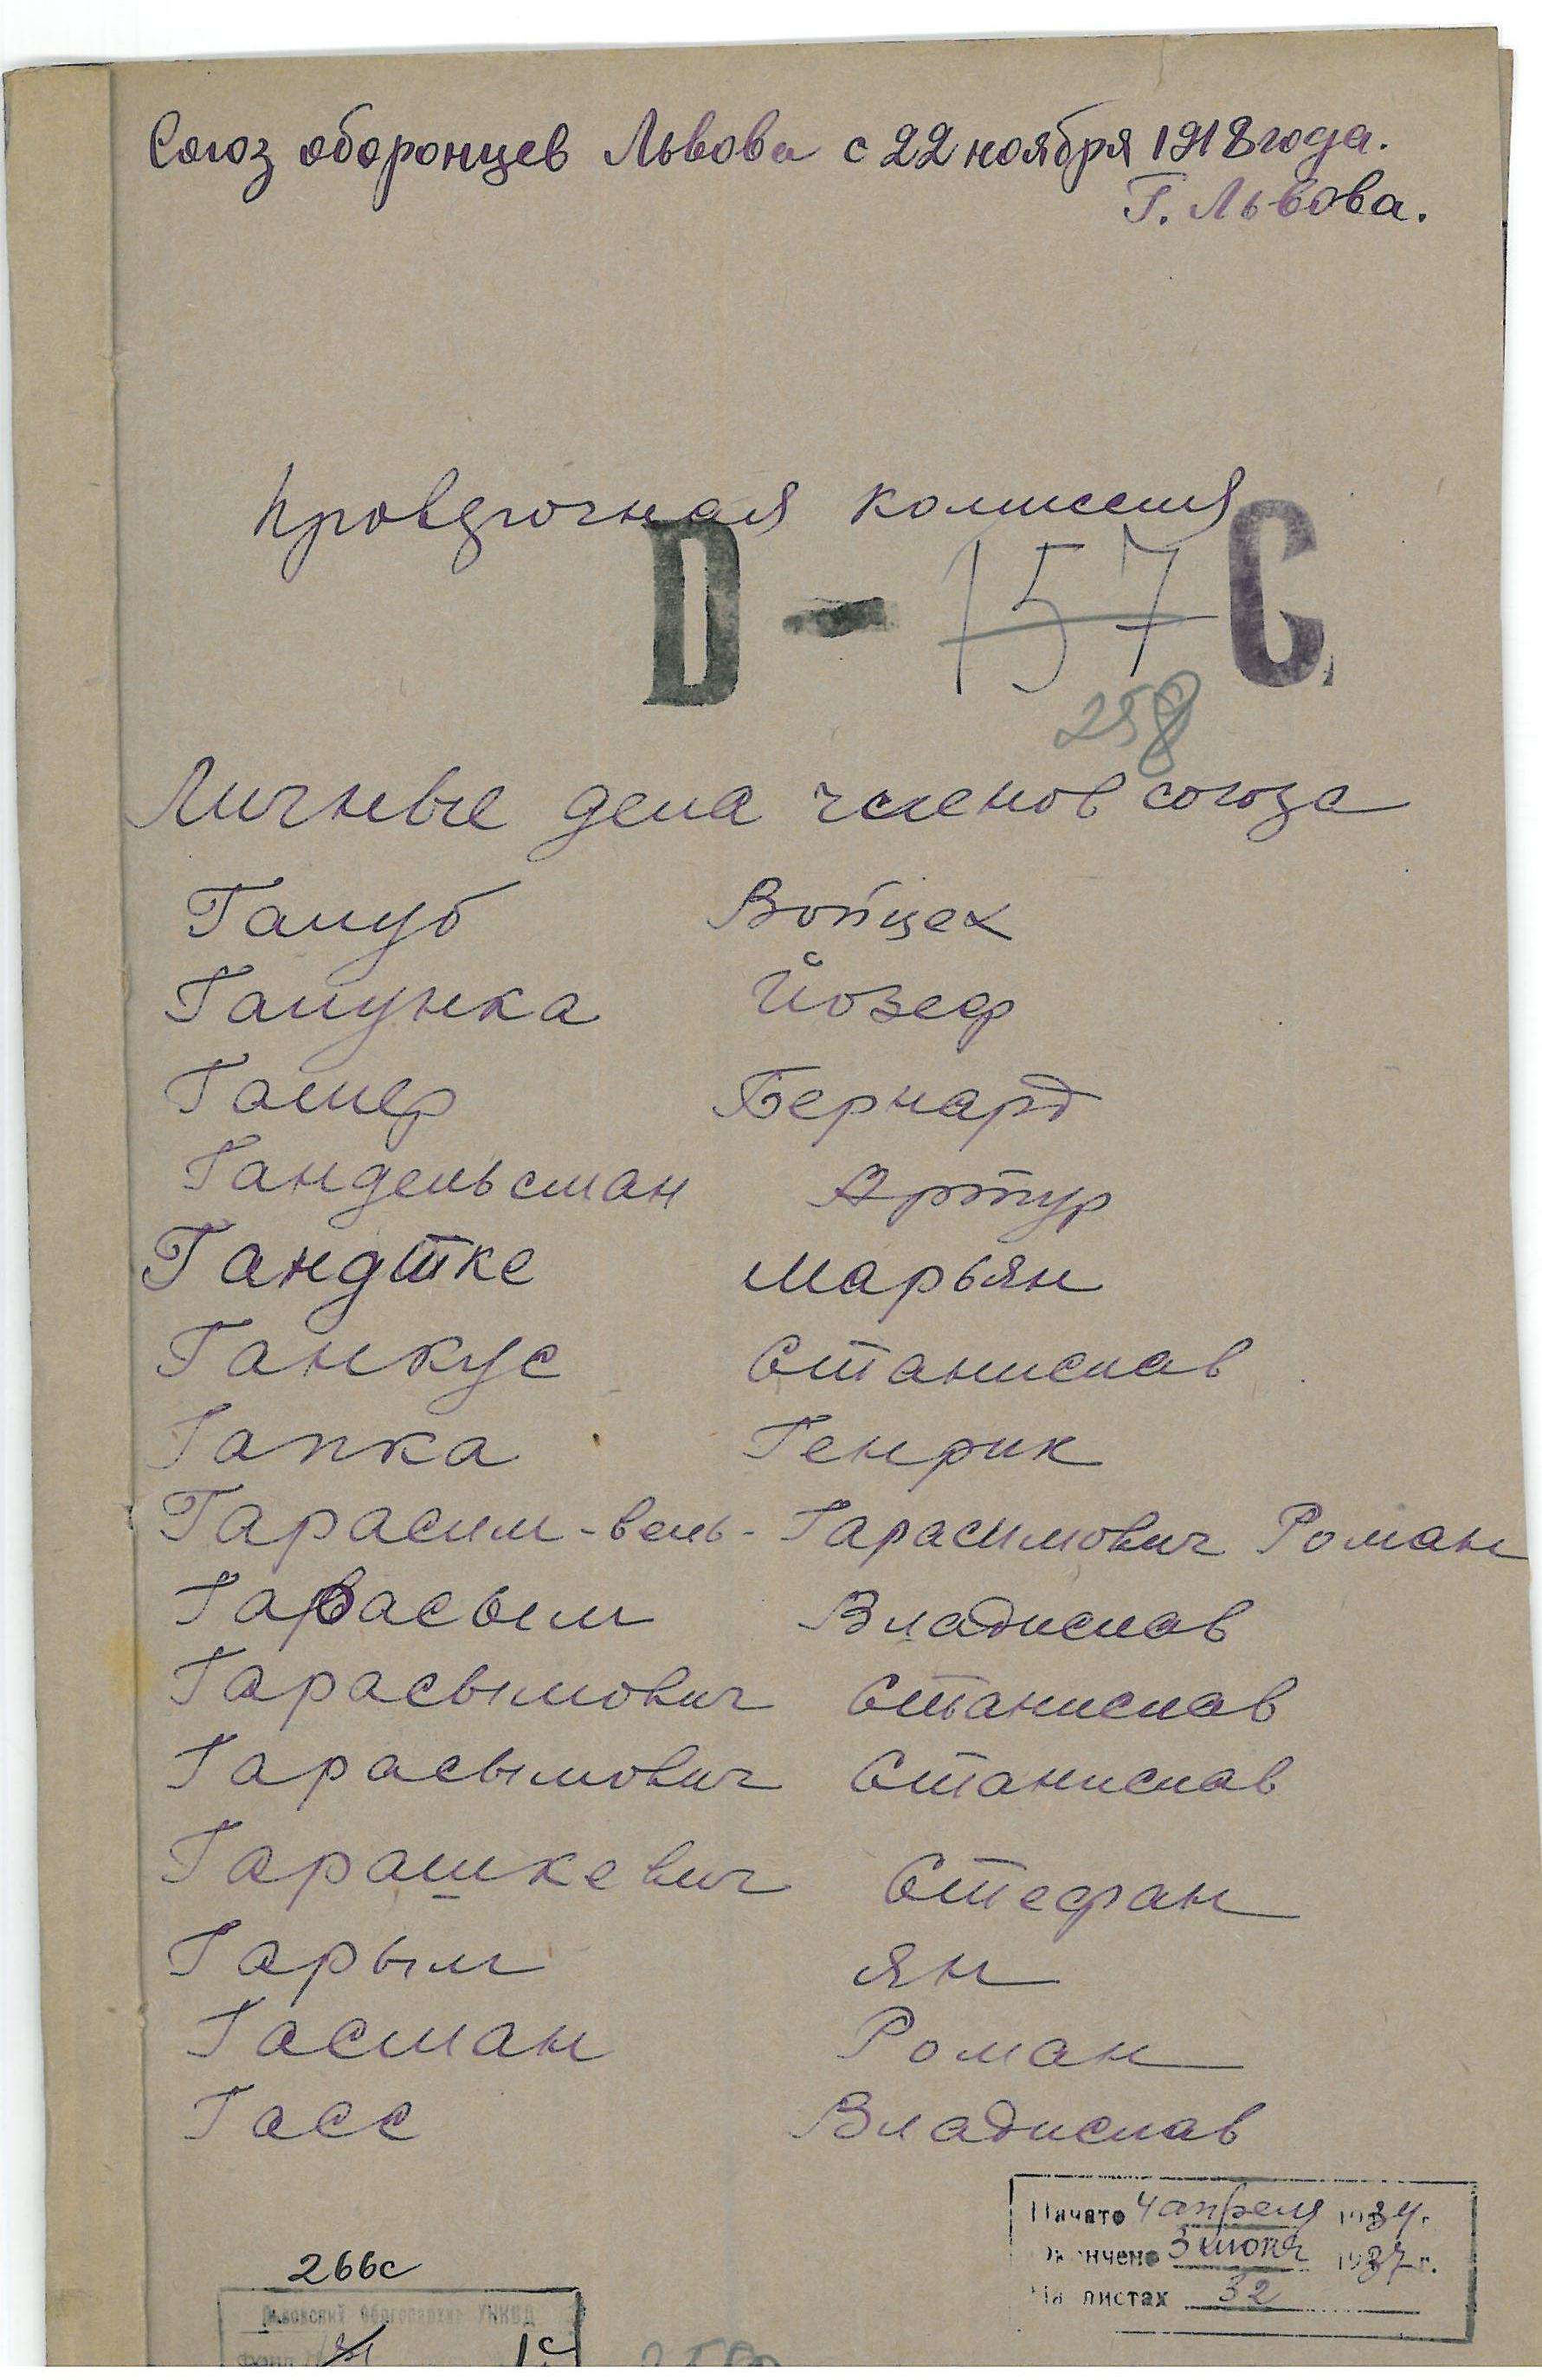 Союз оборонцев Львова с 22 ноября 1918 года.
Г. Львова.
Проверочная комиссия
D - 157 C
258
Личные дела членов союза
Галуб Войцех
Галунка Йозеф
Гамер Бернард
Гандельсман Артур
Гандтке Марьян
Ганкус Станислав
Гапка Генрик
Гарасим-вель-Гарасимович Роман
Гарасым Владислав
Гарасымович Станислав
Гарасымович Станислав
Гарашкевич Стефан
Гарым Ян
Гасман Роман
Гасс Владислав
Начато 4 апреля 1934 г.
Окончено 3 июня 1937 г.
На листах 32
266с
Львовский Облгосархив УНКВД
Фонд 1с